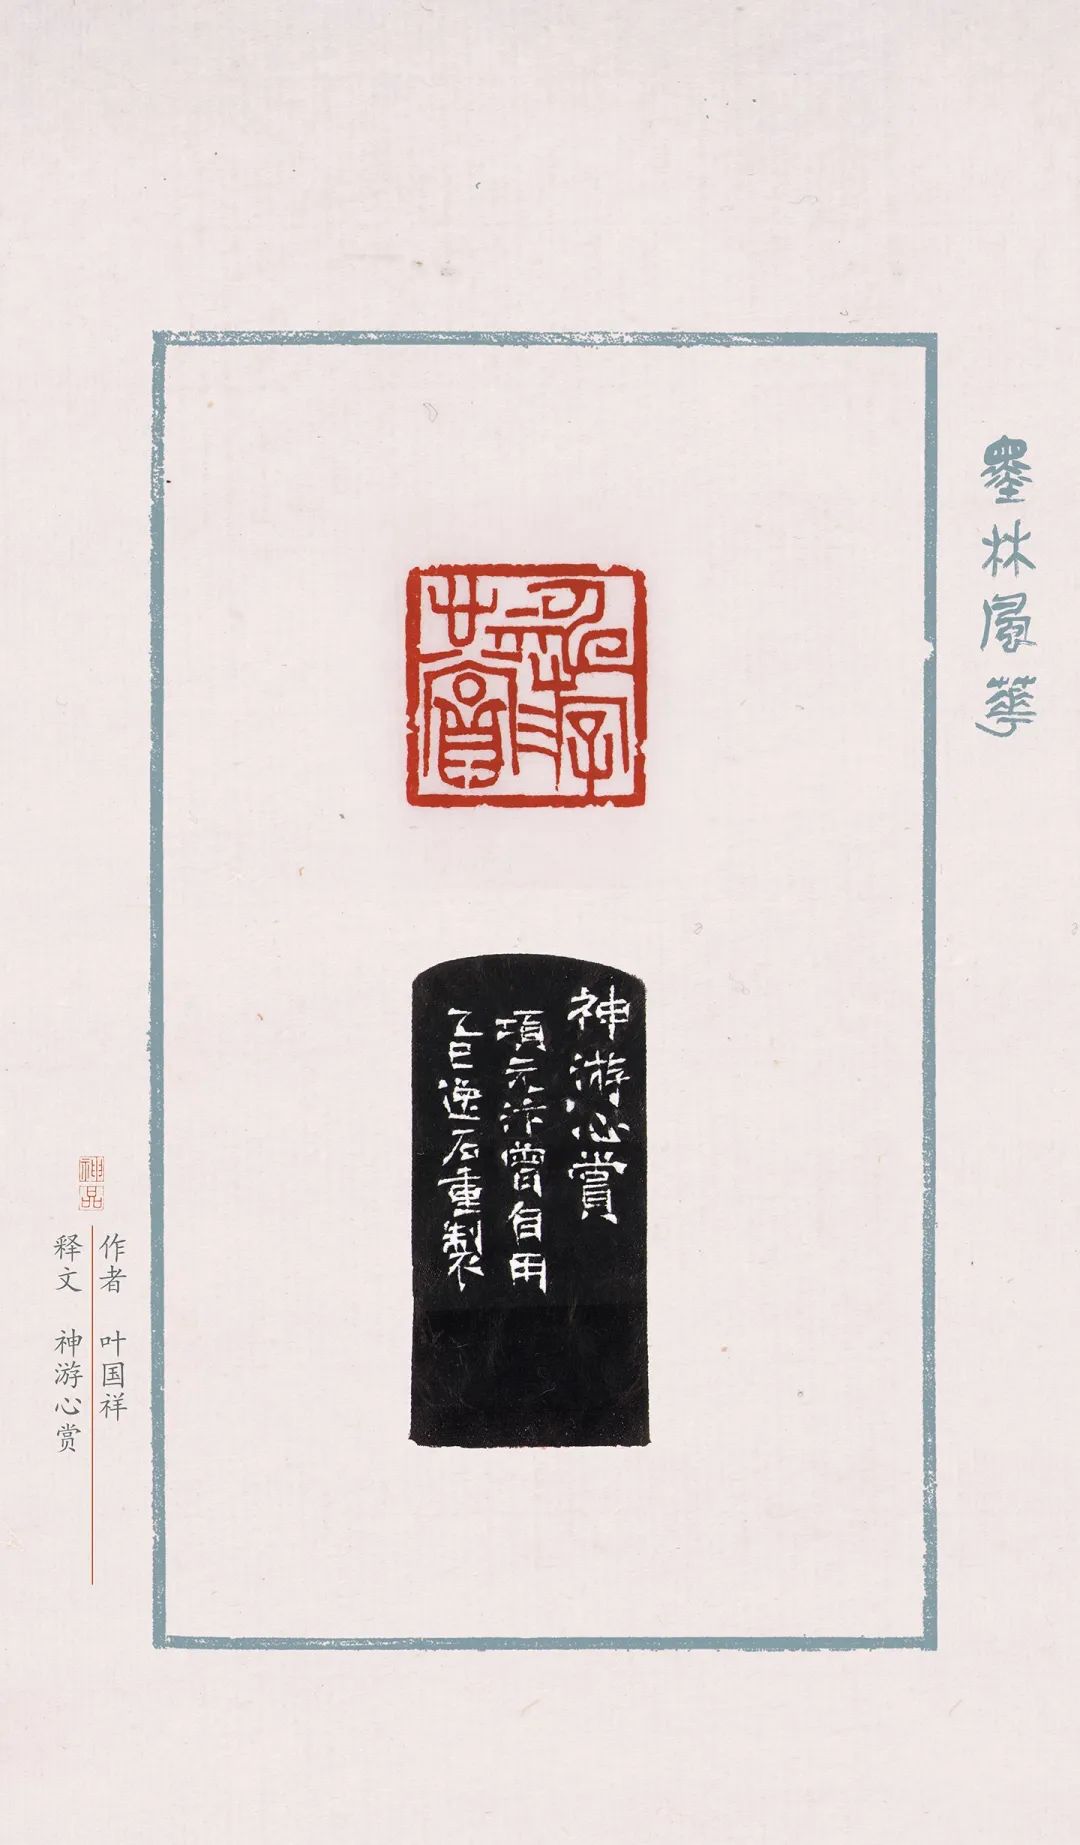 墨林風華
神游心賞
項元汴曾自用
乙巳逸石重製
神品
作者 叶国祥
释文 神游心赏